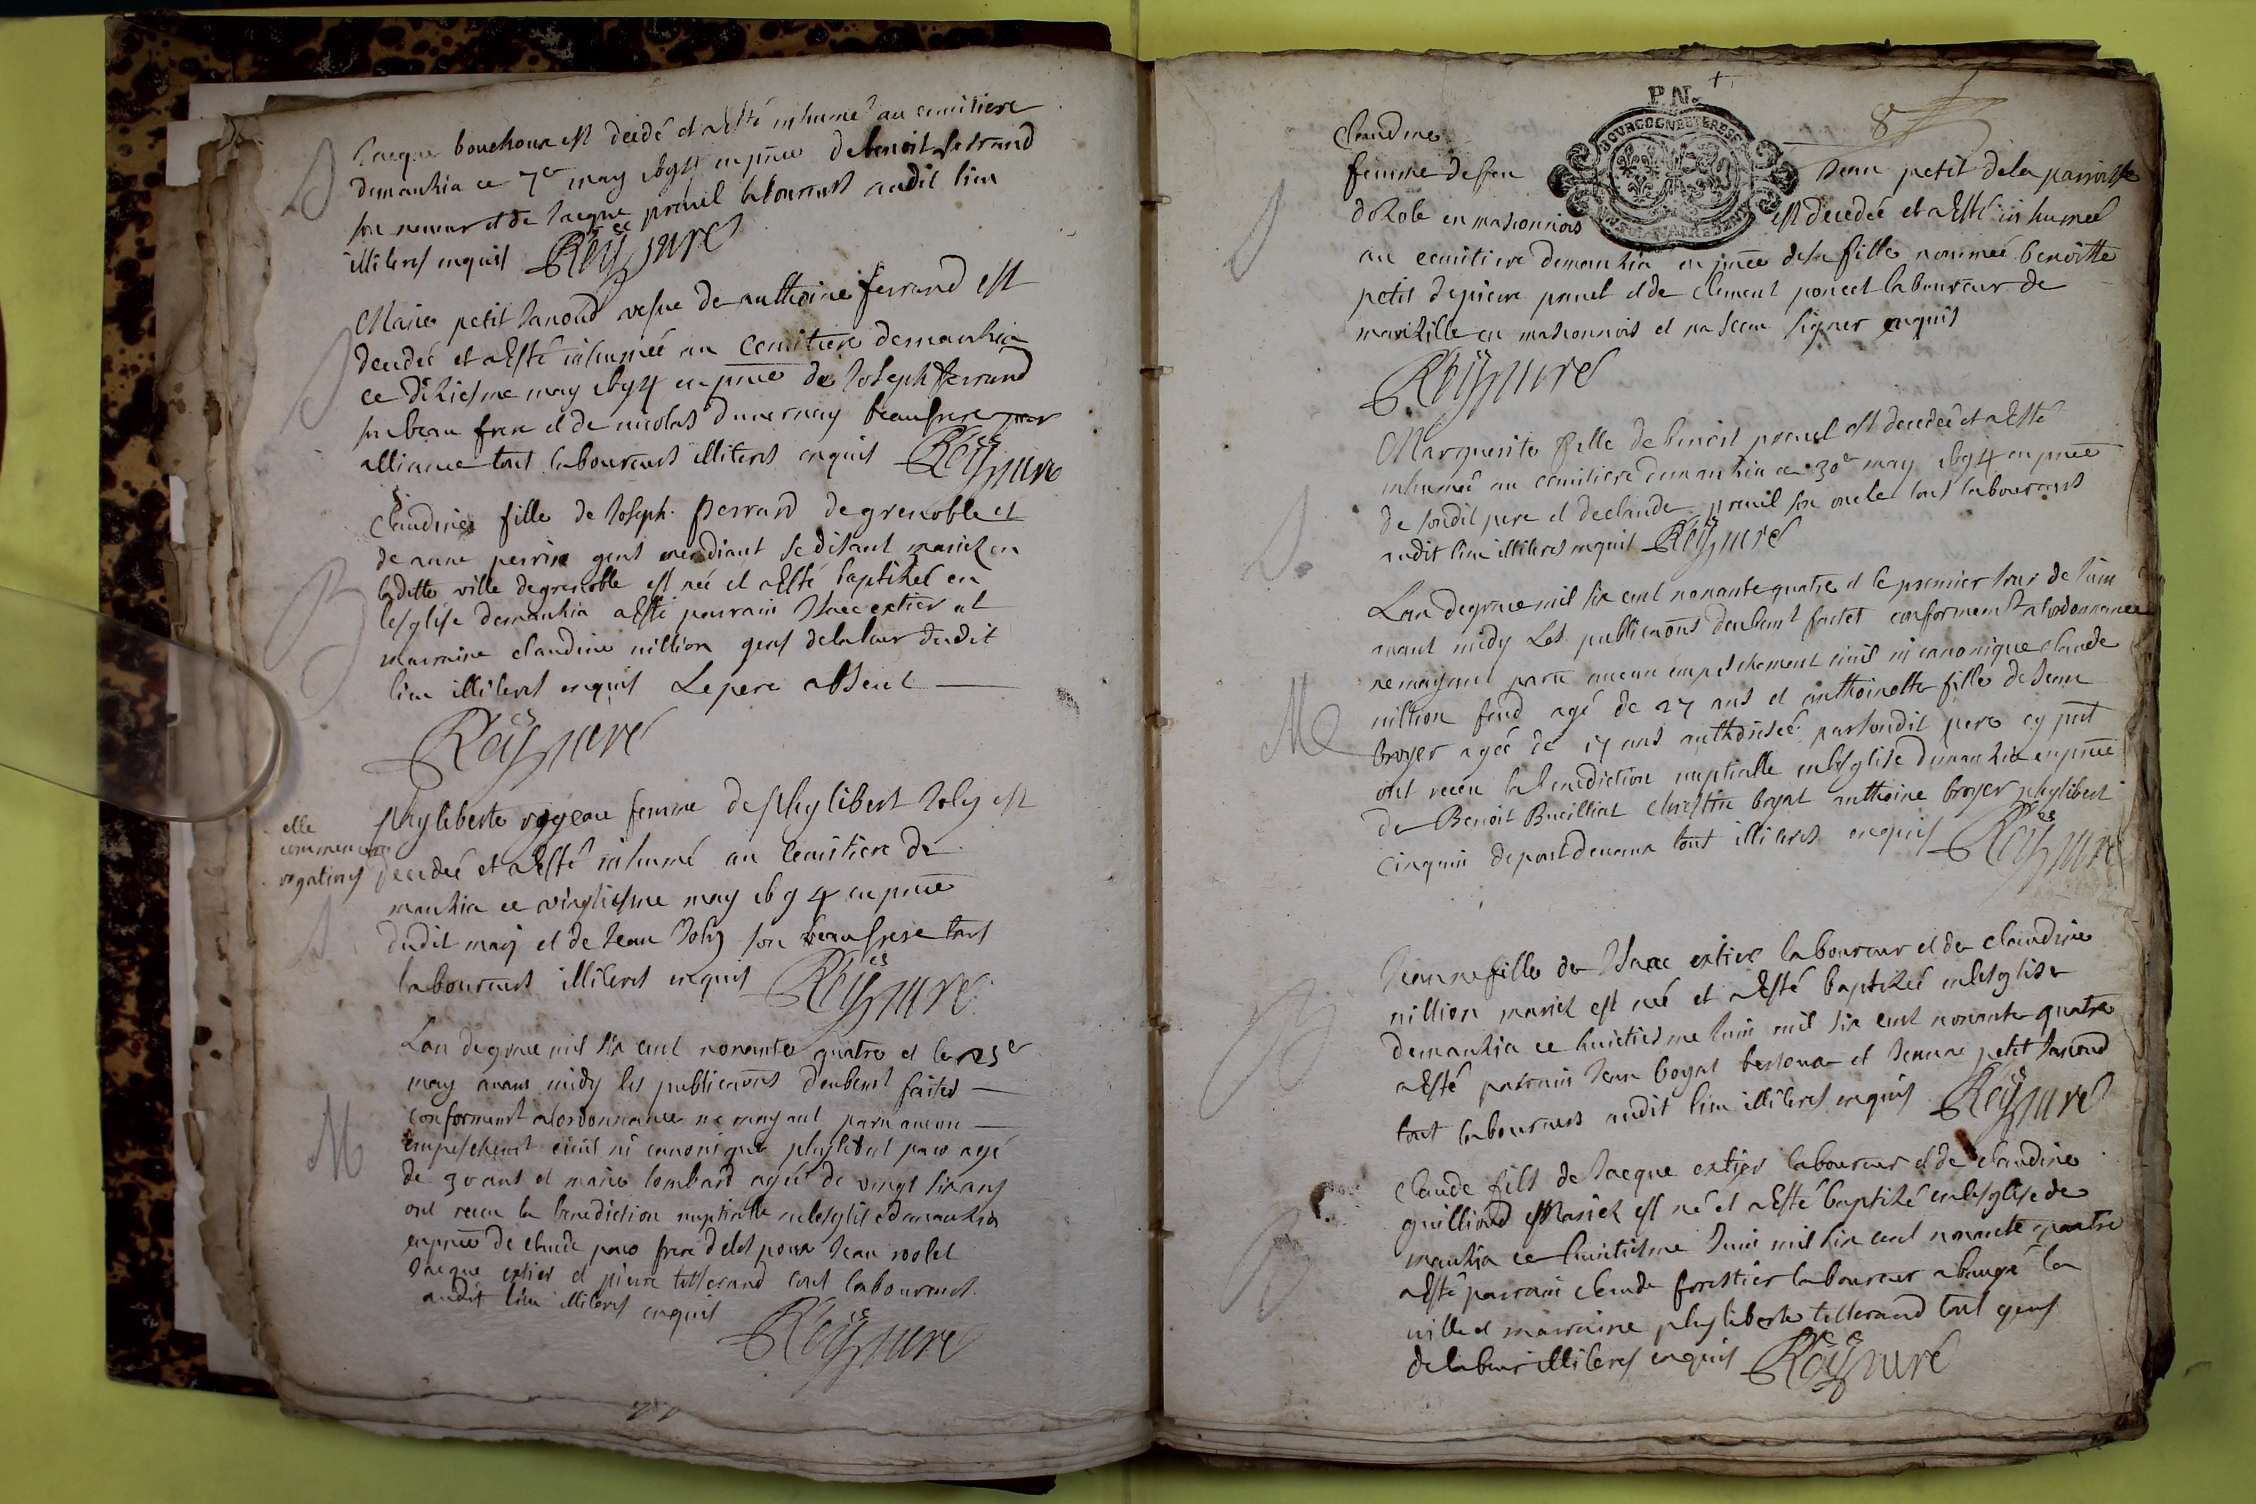 Jacque bouchoux est decedé et a esté inhumé au cemitiere
demanzia ce 7e may 1694 en pnce de benoit ferrand
son neveur et de Jacque preuil laboureurs audit lieu
illiteres enquis Reÿ curé
Marie petit Janoud vefue de anthoine ferrand est
decedeé et a esté inhumeé au cemitiere demanzia
ce diziesme may 1694 en pnce de Joseph ferrand
son beau frere et de nicolas dunernay beaufrere par
alliance tout laboureurs illiteres enquis Reÿ curé
Claudine fille de Joseph ferrand de grenoble et
de anne perrin gens mendiant se disant mariez en
laditte ville de grenoble est neé et a esté baptizeé en
lesglise demanzia a esté parrain Isaac extier et
marraine claudine nillion gens de labeur dudit
lieu illiteres enquis Le pere absent
Reÿ curé
elle
phyliberte femme de phylibert Joly est
decedeé et a esté inhumé au cemitiere de
manzia ce vingtiesme may 1694 en pnce
dudit mary et de Jean Joly son beaufrere tous
laboureurs illiteres enquis Reÿ curé
Lan de grace mil six cent nonante quatre et le 25e
may avant midy les publicaons deubemt faites
conformemt a lordonnance ne mayant paru aucun
empeschemt ciuil ni canonique phylibert paco agé
de 30 ans et marie lombard ageé de vingt six ans
ont receu la benediction nuptialle en lesglise demanzia
en pnce de claude paco frere delespoux Jean rolet
Jacque extier et pierre tisserand tout laboureurs
audit lieu illiteres enquis
Reÿ curé
P.N.
8
Claudine
femme de feu Jean petit de la parroisse
en masconnois est decedeé et a esté inhumeé
au cemitiere demanzia en pnce de sa fille nommeé benoitte
petit de pierre pruel et de Clement poncet laboureur de
en masconnois et na sceu signer enquis
Reÿ curé
Marguerite fille de benoist preuel est decedeé et a esté
inhumeé au cemitiere demanzia ce 30e may 1694 en pnce
de sondit pere et de claude preuil son oncle tous laboureurs
audit lieu illiteres enquis Reÿ curé
Lan de grace mil six cent nonante quatre et le premier Jour de Juin
avant midy Les publicaons deubemt faites conformemt a lordonnance
ne mayant paru aucun empeschement ciuil ni canonique claude
nillion agé de 27 ans et anthoinette fille de Jean
broyer ageé de 17 ans authoriseé par sondit pere cy pnt
ont receu la benediction nuptialle en lesglise demanzia en pnce
de Benoit Buillint Chrestin boyat anthoine broyer phylibert
cinquin de pontdevaux tout illiteres enquis Reÿ curé
Jeanne fille de Isaac extier laboureur et de claudine
nillion mariez est neé et a esté baptizeé en lesglise
demanzia ce huictiesme Juin mil six cent nonante quatre
a esté parrain Jean boyat et Jeanne petit Janoud
tout laboureurs audit lieu illiteres enquis Reÿ curé
Claude fils de Jacque extier laboureur et de claudine
guilliord Mariez est né et a esté baptizé en lesglise de
manzia ce huictiesme Juin mil six cent nonante quatre
a esté parrain claude forestier laboureur a baugé la
ville et marraine phyliberte tisserand tout gens
de labeur illiteres enquis Reÿ curé